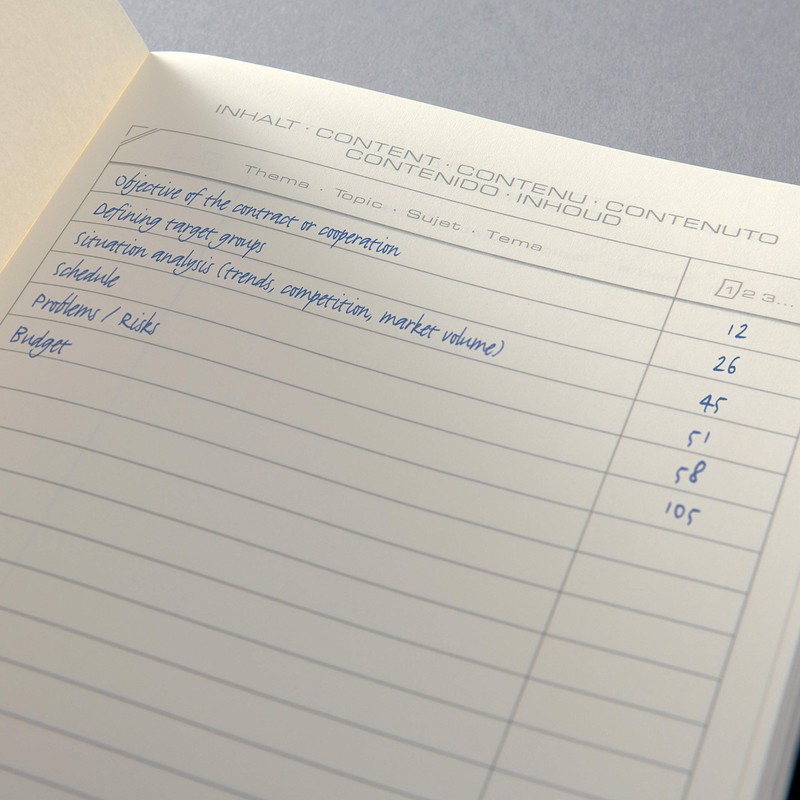 INHALT · CONTENT · CONTENU · CONTENUTO
CONTENIDO · INHOUD
Thema · Topic · Sujet · Tema 1 2 3...
Objective of the contract or cooperation 12
Defining target groups 26
Situation analysis (trends, competition, market volume) 45
Schedule 51
Problems / Risks 58
Budget 105